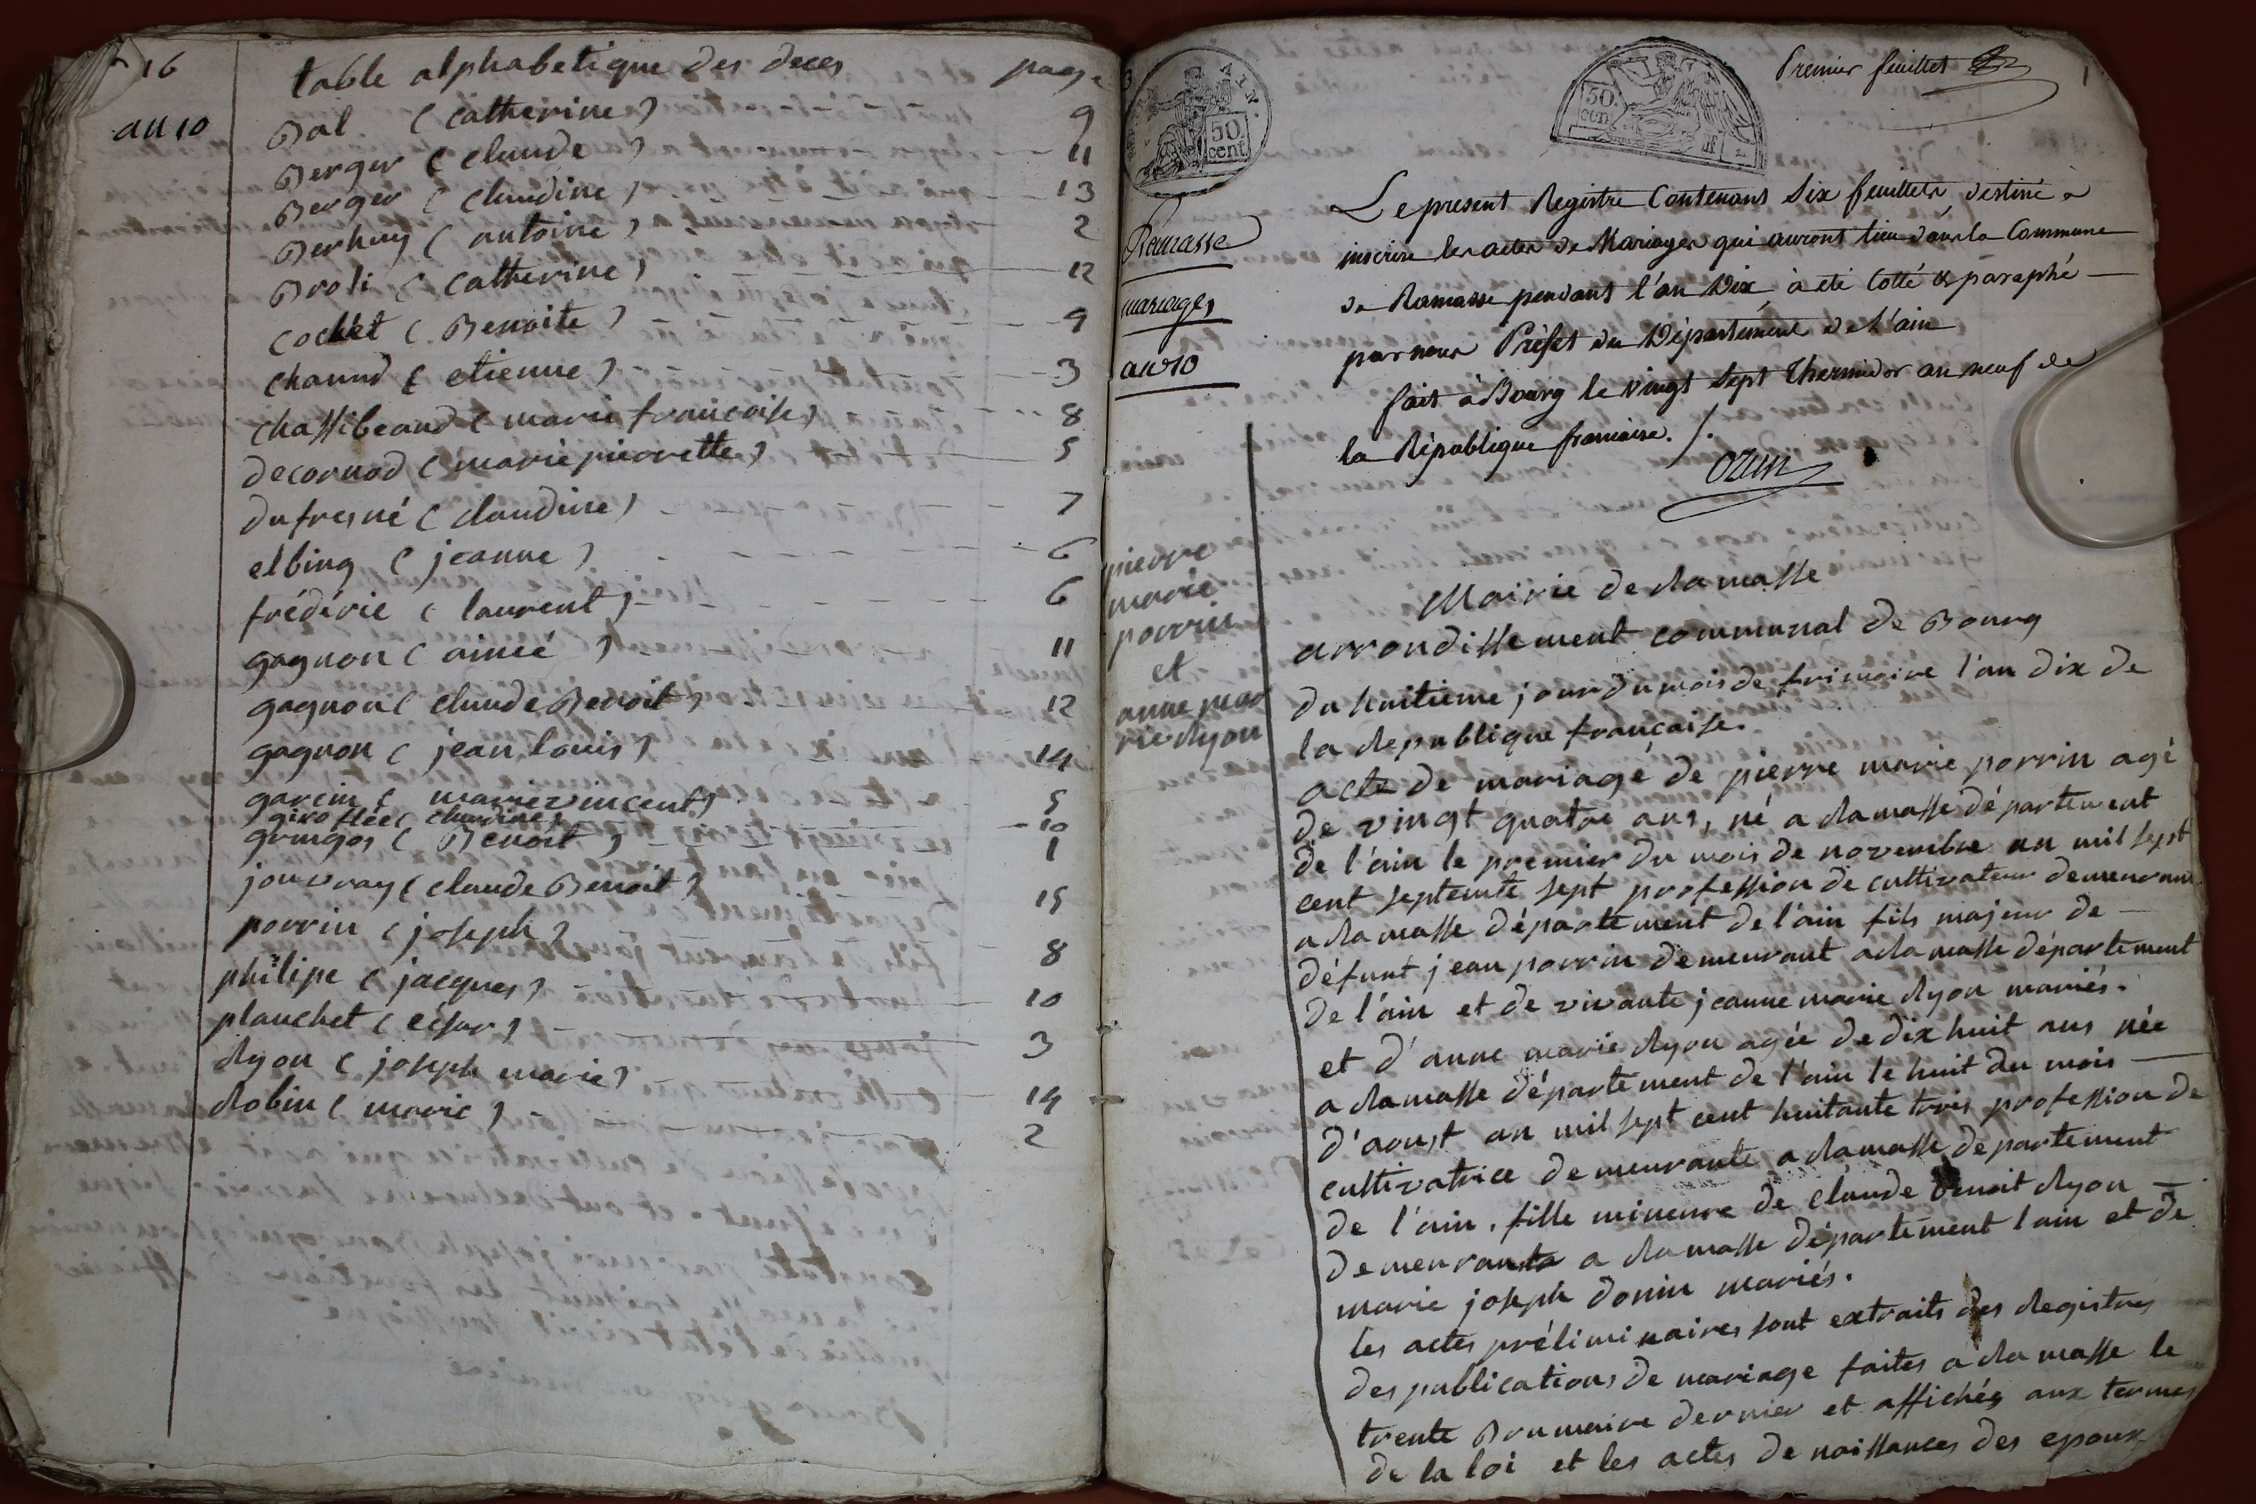 16
table alphabetique des deces
page
an 10
Bal (catherine) 9
Berger (claude) 11
Berger (claudine) 13
Berhuy (antoine) 2
Broli (catherine) 12
cochet (Benoite) 9
chanud (etienne) 3
chassibeaud (marie francoise) 8
decornod (marie pierrette) 5
dufresné (claudine) 7
elbing (jeanne) 6
frédéric (laurent) 6
gagnon (aimée) 11
gagnon (claude Benoit) 12
gagnon (jean louis) 14
garcin (marie vincent) 5
giroflée (claudine) 10
grurgos (Benoit) 1
jouvray (claude Benoit) 15
perrin (joseph) 8
philipe (jacques) 10
planchet (césar) 3
Ryon (joseph marie) 14
Robin (marie) 2
AIN.
50 cent
50. cen
Premier feuillet
1
Ramasse
mariages
an 10
Le present Registre Contenant Six feuillets, destiné à
inscrire les actes de Mariages qui auront lieu dans la Commune
de Ramasse pendant l'an Dix à été Cotté & paraphé
par nous Préfet du Département de L'ain
fait à Bourg le vingt Sept Thermidor an neuf de
la République francaise. /.
Ozun
pierre
marie
perrin
et
anne mar
rie Ryon
Mairie de Ramasse
arrondissement communal de Bourg
du huitieme jour du mois de frimaire l'an dix de
la Republique française.
acte de mariage de pierre marie perrin agé
de vingt quatre ans, né a Ramasse département
de l'ain le premier du mois de novembre an mil sept
cent septente sept profession de cultivateur demeurant
a Ramasse département de l'ain fils majeur de
défunt jean perrin demeurant a Ramasse département
de l'ain et de vivante jeanne marie Ryon mariés.
et d'anne marie Ryon agée de dix huit ans née
a Ramasse département de l'ain le huit du mois
d'aoust an mil sept cent huitante trois profession de
cultivatrice demeurante a Ramasse departement
de l'ain. fille mineure de claude benoit Ryon
demeurante a Ramasse département lain et de
marie joseph donin mariés.
les actes préliminaires sont extraits des Registres
des publications de mariage faites a Ramasse le
trente Brumaire dernier et affichés aux termes
de la loi et les actes de naissances des epoux